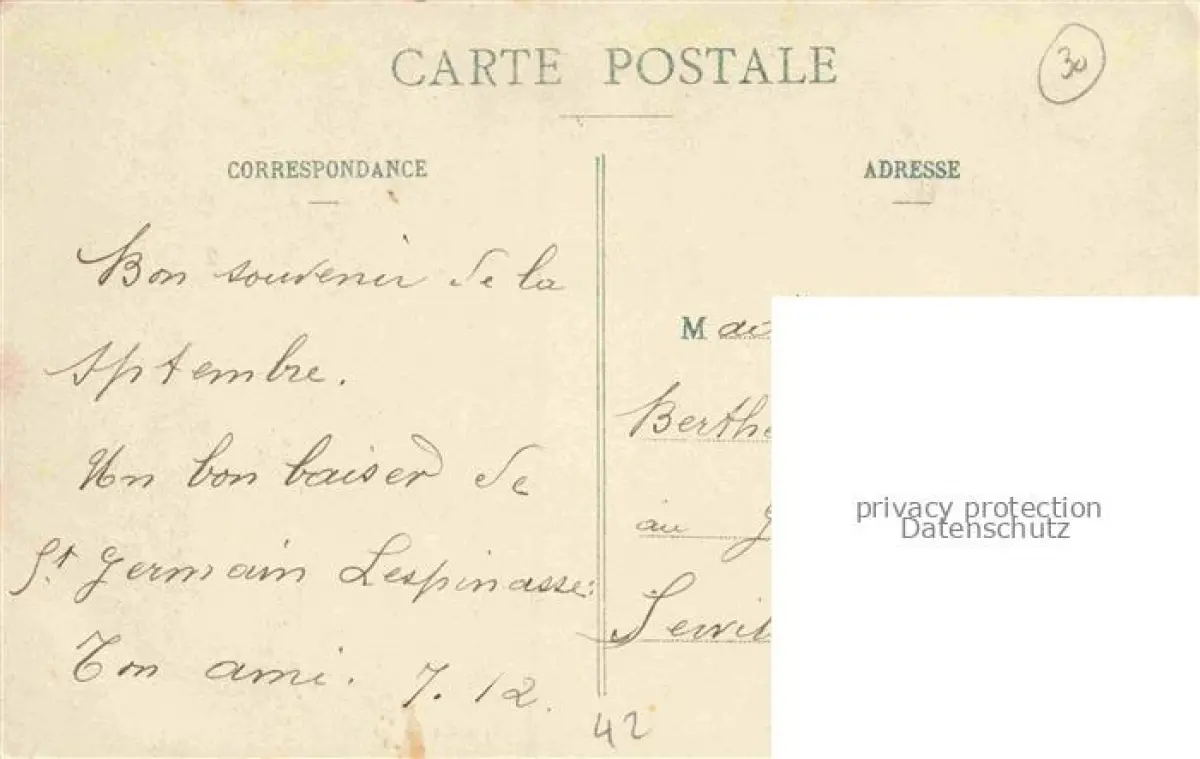 CARTE POSTALE
30
CORRESPONDANCE
Bon souvenir de la
sptembre.
Un bon baiser de
St Germain Lespinasse:
Ton ami. 7. 12.
42
ADRESSE
M
Berthe
au
privacy protection
Datenschutz